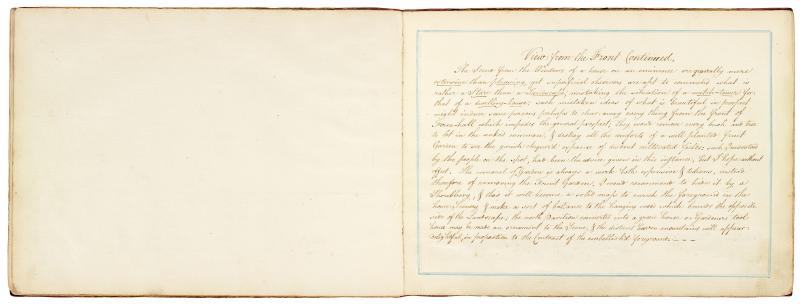 View from the Front Continued.
The Scene from the Windows of a house on an eminence are generally more
extensive than pleasing, yet superficial observers are apt to commend what is
rather a Stare than a Landscape, mistaking the situation of a watch-tower for
that of a dwelling-house; such mistaken ideas of what is beautiful in prospect
might induce some persons perhaps to clear away every thing from the front of
which impedes the general prospect; they would remove every bush and tree
to let in the naked common, & destroy all the comforts of a well planted Fruit
Garden to see the expanse of distant cultivated fields: such I understand
by the people on the spot, has been the advice given in this instance, but I hope without
effect. The removal of Garden is always a work both expensive & tedious, instead
therefore of removing the Fruit Garden, I would recommend to hide it by a
Shrubbery, & thus it will become a mass to enrich the Foreground in the
home Scenery & make a sort of ballance to the hanging wood which bounds the opposite
side of the Landscape; the north pavilion converted into a green house or Gardeners tool
house may be made an ornament to the Scene, & the distant mountains will appear
delightful, in proportion to the Contrast of the embellish'd foreground - - -